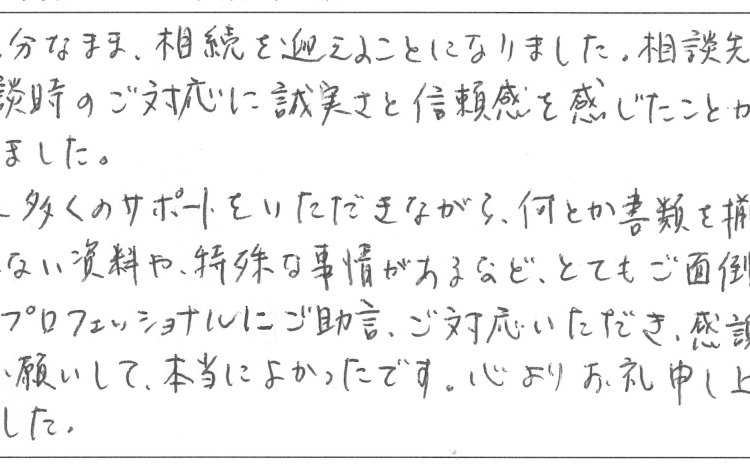 分なまま、相続を迎えることになりました。相談先
談時のご対応に誠実さと信頼感を感じたことが
ました。
多くのサポートをいただきながら、何とか書類を揃
ない資料や、特殊な事情があるなど、とてもご面倒
プロフェッショナルにご助言、ご対応いただき、感謝
願いして、本当によかったです。心よりお礼申し上
した。